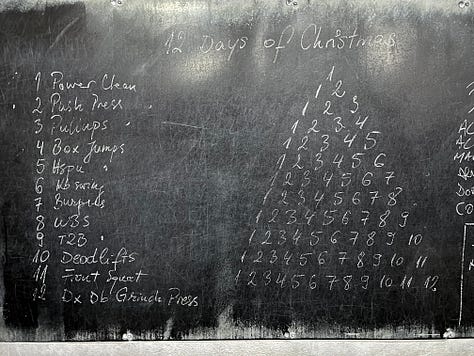 12 Days of Christmas
1 Power Clean
2 Push Press
3 Pullups
4 Box Jumps
5 Hspu
6 Kb swing
7 Burpees
8 WBS
9 T2B
10 Deadlifts
11 Front Squat
12 Dx Db Grinch Press
1
1 2
1 2 3
1 2 3 4
1 2 3 4 5
1 2 3 4 5 6
1 2 3 4 5 6 7
1 2 3 4 5 6 7 8
1 2 3 4 5 6 7 8 9
1 2 3 4 5 6 7 8 9 10
1 2 3 4 5 6 7 8 9 10 11
1 2 3 4 5 6 7 8 9 10 11 12
AC
AC
MA
CO